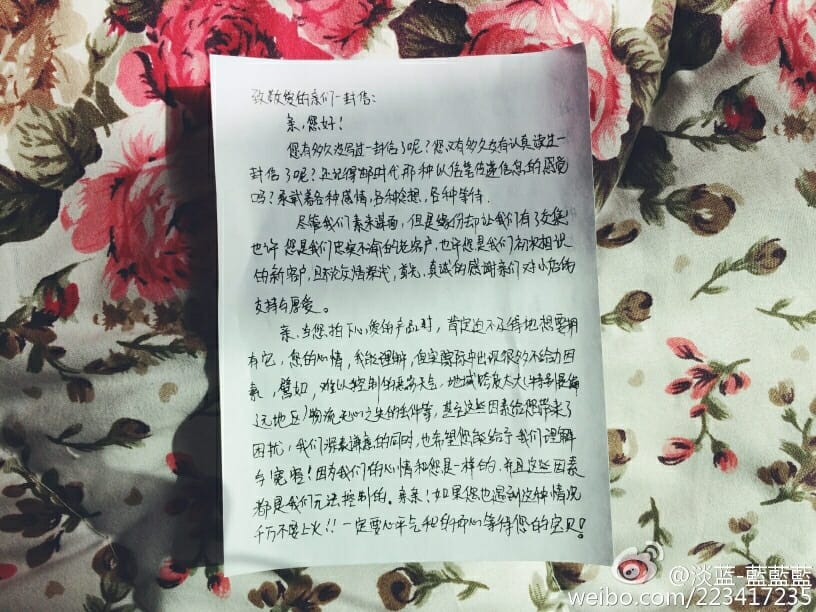 致敬爱的亲们一封信:
亲,您好!
您有多久没写过一封信了呢?您又有多久没有认真读过一
封信了呢?还记得邮时代那种以信笔传递信息的感觉
吗?承载着各种感情,各种念想,各种等待.
尽管我们素未谋面,但是缘份却让我们有了交集
也许您是我们忠实不渝的老客户,也许您是我们初次相识
的新客户,且不论交情深浅,首先,真诚的感谢亲们对小店的
支持与厚爱。
亲,当您拍下心爱的产品时,肯定迫不及待地想要拥
有它,您的心情,我能理解,但实际中出现很多不给力因
素,譬如,难以控制的恶劣天气,地域跨度太大(特别是偏
远地区)物流无心之失的丢件等,甚至这些因素给您带来了
困扰,我们深表谦意的同时,也希望您能给予我们理解
与宽容!因为我们的心情和您是一样的,并且这些因素
都是我们无法控制的。亲亲!如果您也遇到这种情况
千万不要上火!!一定要心平气和的耐心等待您的宝贝!
@淡蓝-藍藍藍
weibo.com/223417235